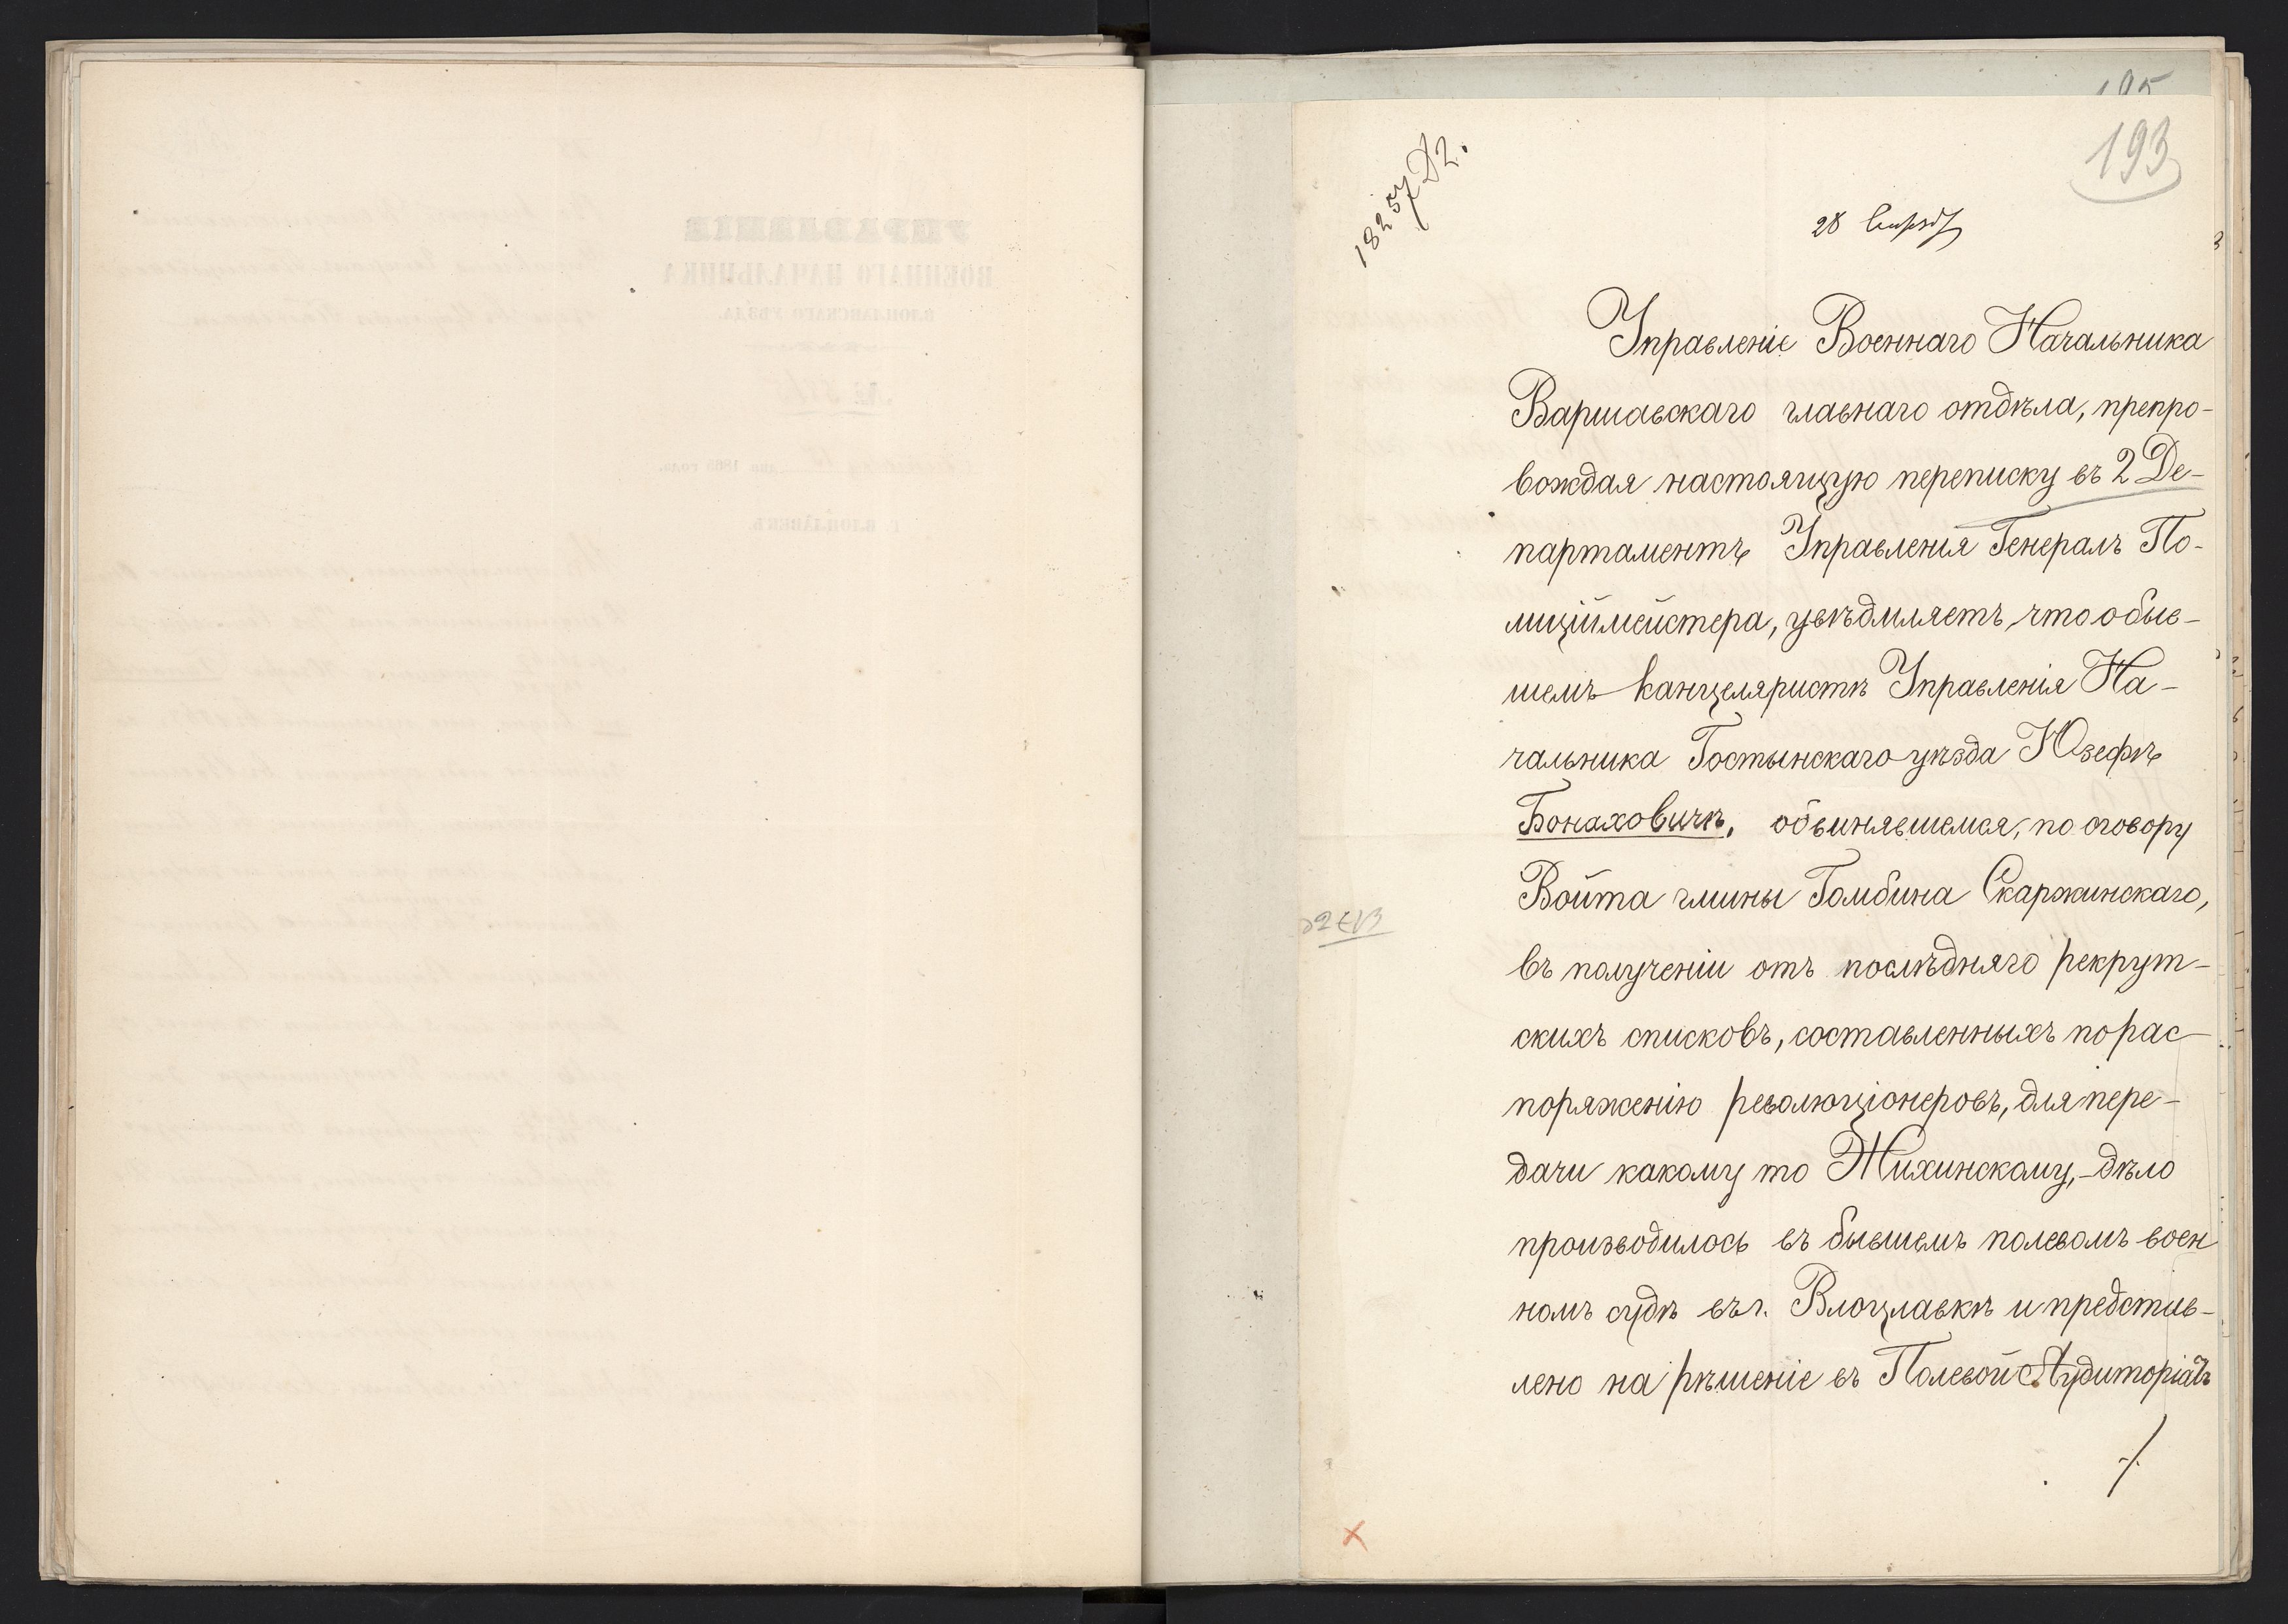 195
193
18257 Д2.
28
Управленіе Военнаго Начальника
Варшавскаго главнаго отдѣла, препро-
вождая настоящую переписку въ 2 Де-
партаментъ Управленія Генералъ По-
лиціймейстера, увѣдмляетъ, что о быв-
шемъ канцеляристѣ Управленія На-
чальника Гостынскаго уѣзда Юзефѣ
Бонаховичѣ, обвинявшемся, по оговору
Войта гмины Гомбина Скаржинскаго,
въ полученіи отъ послѣдняго рекрут-
скихъ списковъ, составленныхъ по рас-
поряженію революціонеровъ, для пере-
дачи какому то Жихинскому, - дѣло
производилось въ бывшемъ полевомъ воен
номъ судѣ въ г. Влоцлавкѣ и представ-
лено на рѣшеніе въ Полевой Аудиторіатъ
УПРАВЛЕНІЕ
ВОЕННАГО НАЧАЛЬНИКА
ВЛОЦЛАВСКАГО УѢЗДА.
дня 1865 года.
Г. ВЛОЦЛАВЕКЪ.